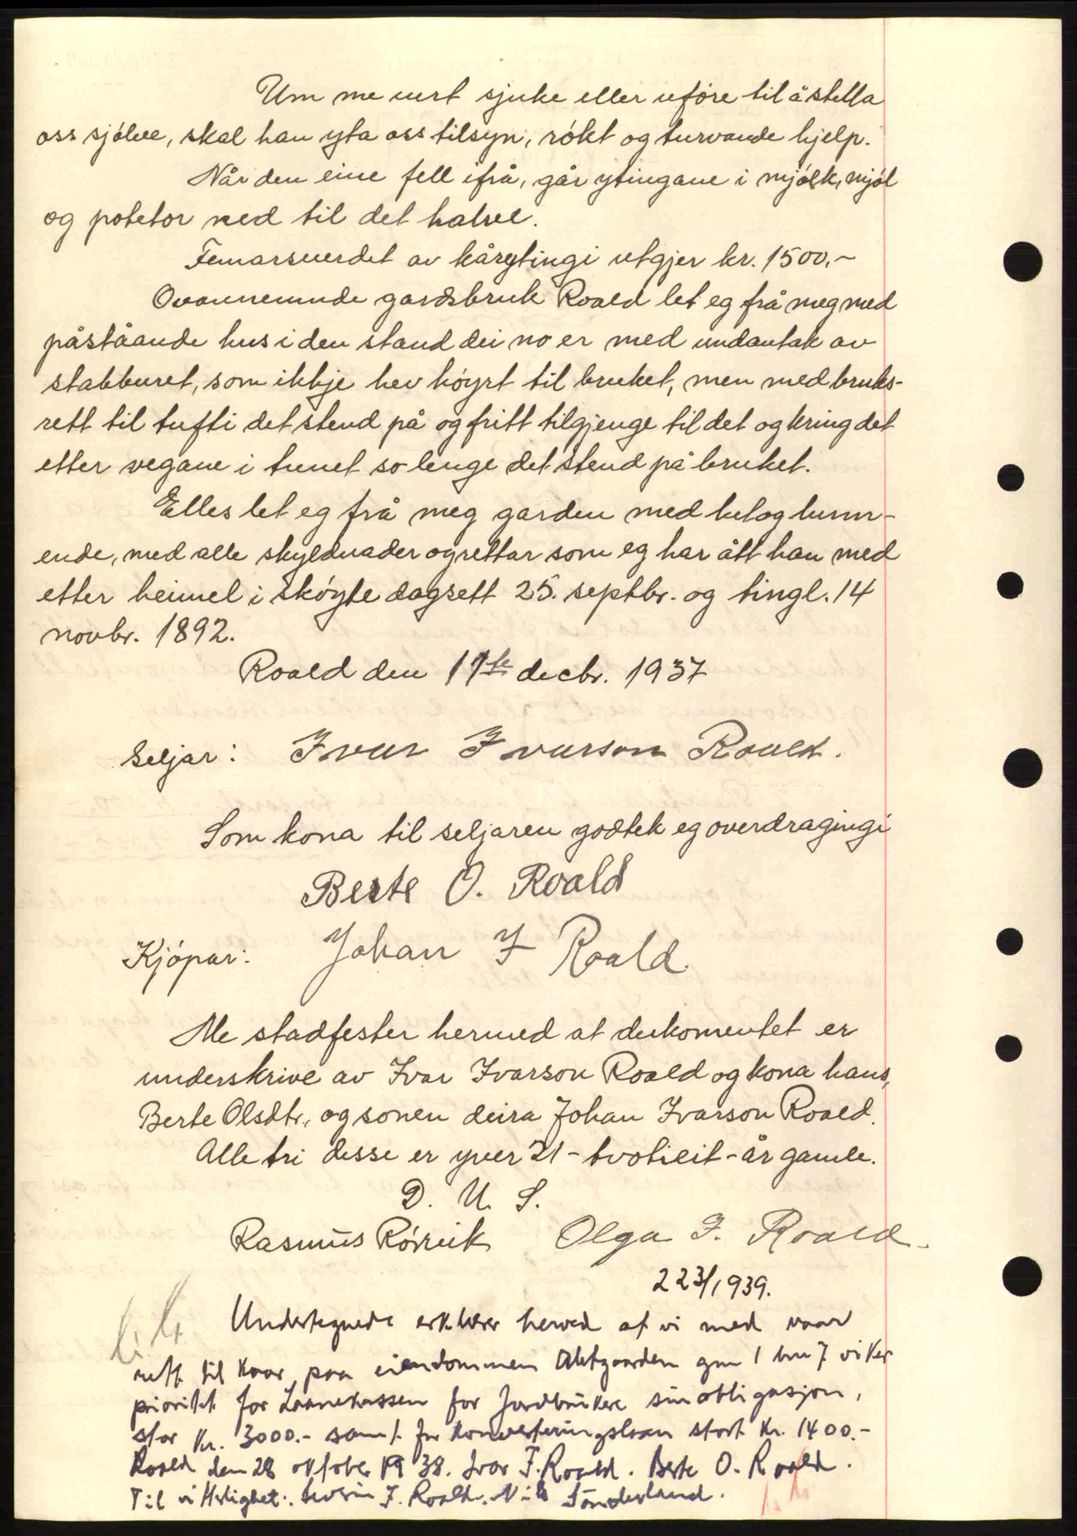 Um me vert sjuke eller uføre til å stella
oss sjølve, skal han yta oss tilsyn, røkt og turvande hjelp.
Når den eine fell ifrå, går ytingane i mjølk, mjøl
og potetor ned til det halve.
Femårsverdet av kårytingi utgjer kr. 1500.-
Ovannemnde gardsbruk Roald let eg frå meg med
påståande hus i den stand dei no er med undantak av
stabburet, som ikkje hev høyrt til bruket, men med bruks-
rett til tufti det stend på og fritt tilgjenge til det og kring det
etter vegane i tunet so lenge det stend på bruket.
Elles let eg frå meg garden med lut og lunn-
ende, med alle skyldnader og rettar som eg har ått han med
etter heimel i skøyte dagsett 25. septbr. og tingl. 14
novbr. 1892.
Roald den 11te decbr. 1937
Seljar: Ivar Ivarson Roald.
Som kona til seljaren godtek eg overdragingi
Berte O. Roald
Kjøpar: Johan I Roald.
Me stadfester hermed at dokomentet er
underskrive av Ivar Ivarson Roald og kona hans,
Berte Olsdtr., og sonen deira Johan Ivarson Roald.
Alle tri desse er yver 21 - tvotieit - år gamle.
D. U. S.
Rasmus Rørvik Olga I. Roald.
223/1939.
Undertegnede erklærer herved at vi med vaar
rett til kaar paa eiendommen Øktgaarden gnr 1 bnr 7 viker
prioritet for Laanekassen for Jordbrukere sin obligasjon,
stor kr. 3000.- samt for konverteringslaan stort kr. 1400.-
Roald den 28 oktober 1938. Ivar I. Roald. Berte O. Roald.
Til vitterlighet: Severin I. Roald. Nils Sønderland.